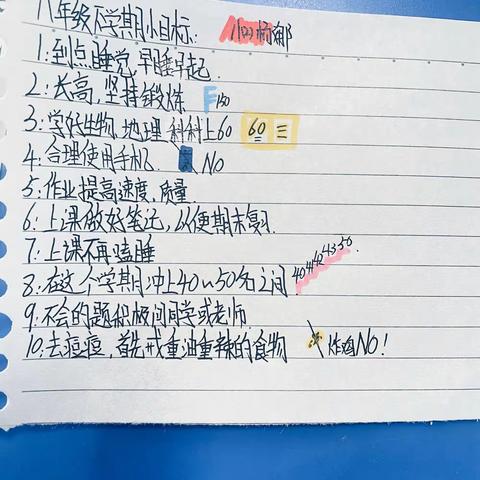 八年级下学期小目标:
1.到点睡觉,早睡早起.
2.长高,坚持锻炼
3.学好生物,地理 科科上60 60
4.合理使用手机 NO
5.作业提高速度,质量.
6.上课做好笔记,以便期末复习.
7.上课不再瞌睡
8.在这个学期冲上40~50名之间.
9.不会的题积极问同学或老师.
10.去痘痘,首先戒重油重辣的食物 炸鸡NO!